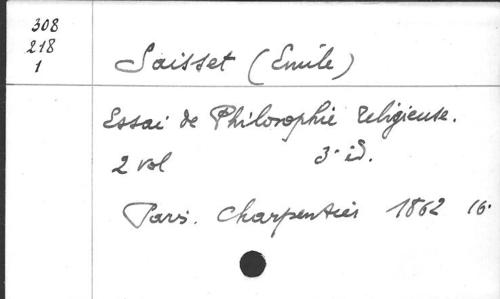 308
218
1
Saisset (Emile)
Essai de Philosophie religieuse.
2 vol 3e éd.
Paris. Charpentier 1862 16.